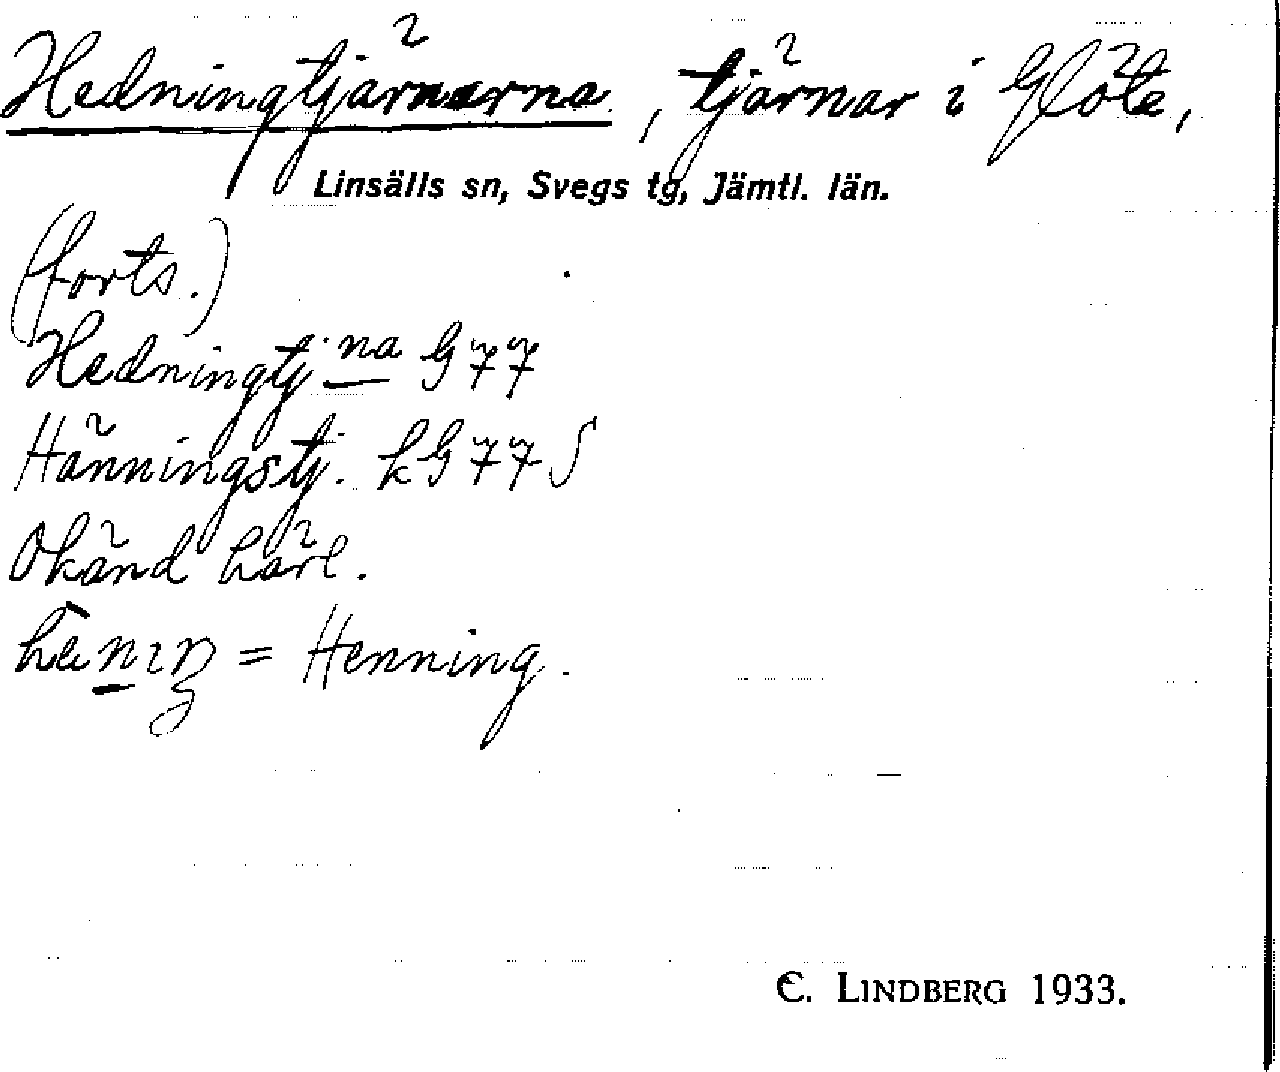 Hedningtjärnarna, tjärnar i Glöte,
Linsälls sn, Svegs tg, Jämtl. län.
(forts.)
Hedningtj. na G 77
Hänningstj. kG 77 S
Okänd härl.
= Henning.
C. LINDBERG 1933.